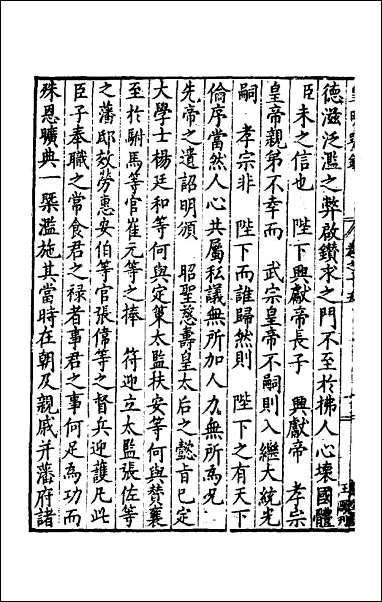 德滋泛濫之弊啟鑽求之門不至於拂人心壞國體
臣未之信也 陛下興獻帝長子 興獻帝 孝宗
皇帝親弟不幸而 武宗皇帝不嗣則入繼大統光
嗣 孝宗非 陛下而誰歸然則 陛下之有天下
倫序當然人心共屬私議無所加人力無所為况
先帝之遺詔明頒 昭聖慈壽皇太后之懿旨已定
大學士楊廷和等何與定策太監扶安等何與賛襄
至於駙馬等官崔元等之捧 符迎立太監張佐等
之藩邸效勞惠安伯等官張偉等之督兵迎護凡此
臣子奉職之常食君之祿者事君之事何足為功而
殊恩曠典一槩濫施其當時在朝及親戚并藩府諸